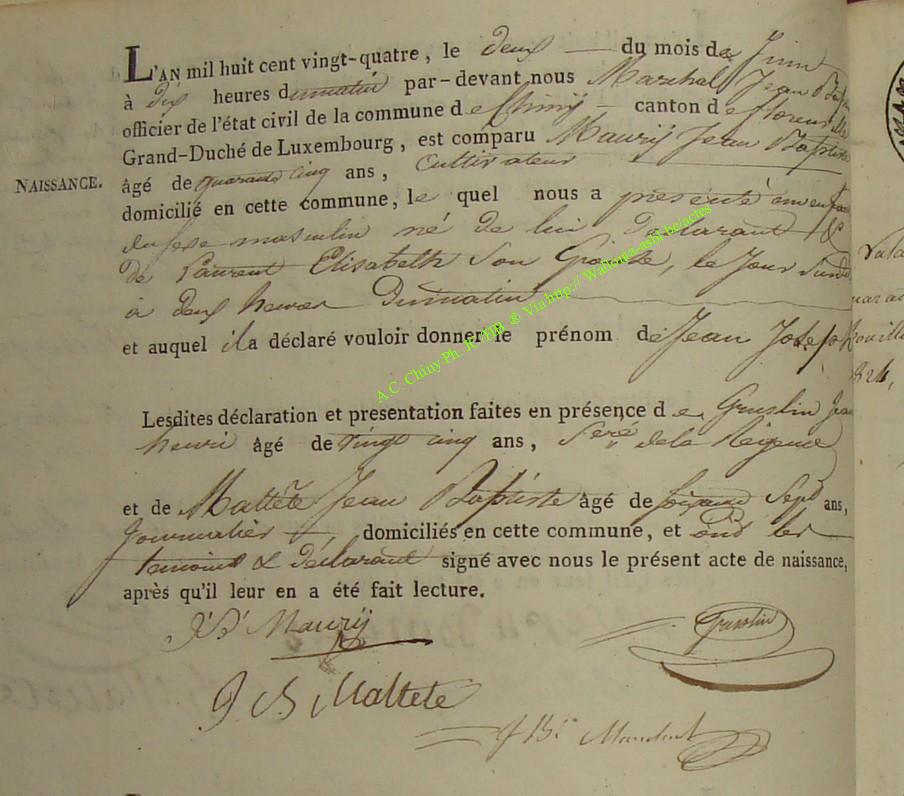 L'AN mil huit cent vingt-quatre, le deux du mois de Juin
à dix heures dumatin par-devant nous Maréchal Jean Bte
officier de l'état civil de la commune de Chiny canton de florenville
Grand-Duché de Luxembourg, est comparu Maurÿ Jean Baptiste
NAISSANCE.
âgé de quarante cinq ans, Cultivateur
domicilié en cette commune, le quel nous a présenté un enfant
du sexe masculin né de lui Déclarant &
de Laurent Elisabeth Son Epouse, le Jour
à deux heures Dumatin
et auquel il a déclaré vouloir donner le prénom de Jean Joseph
Lesdites déclaration et presentation faites en présence de Gruslin Jean
henri âgé de vingt cinq ans, Secré dela Régence
et de Maltête Jean Baptiste âgé de soixante Sept ans,
Journalier, domiciliés en cette commune, et ond les
temoins & déclarant signé avec nous le présent acte de naissance,
après qu'il leur en a été fait lecture.
J B Maurÿ
Gruslin
J B Maltete
J Bte Marechal
A.C. Chiny Ph. ® Via http:// Wallonie-asbl-be/actes
824,